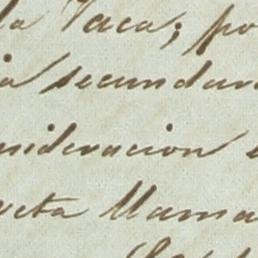 la Vaca; po
ia secundar
nsideracion
ueta llama